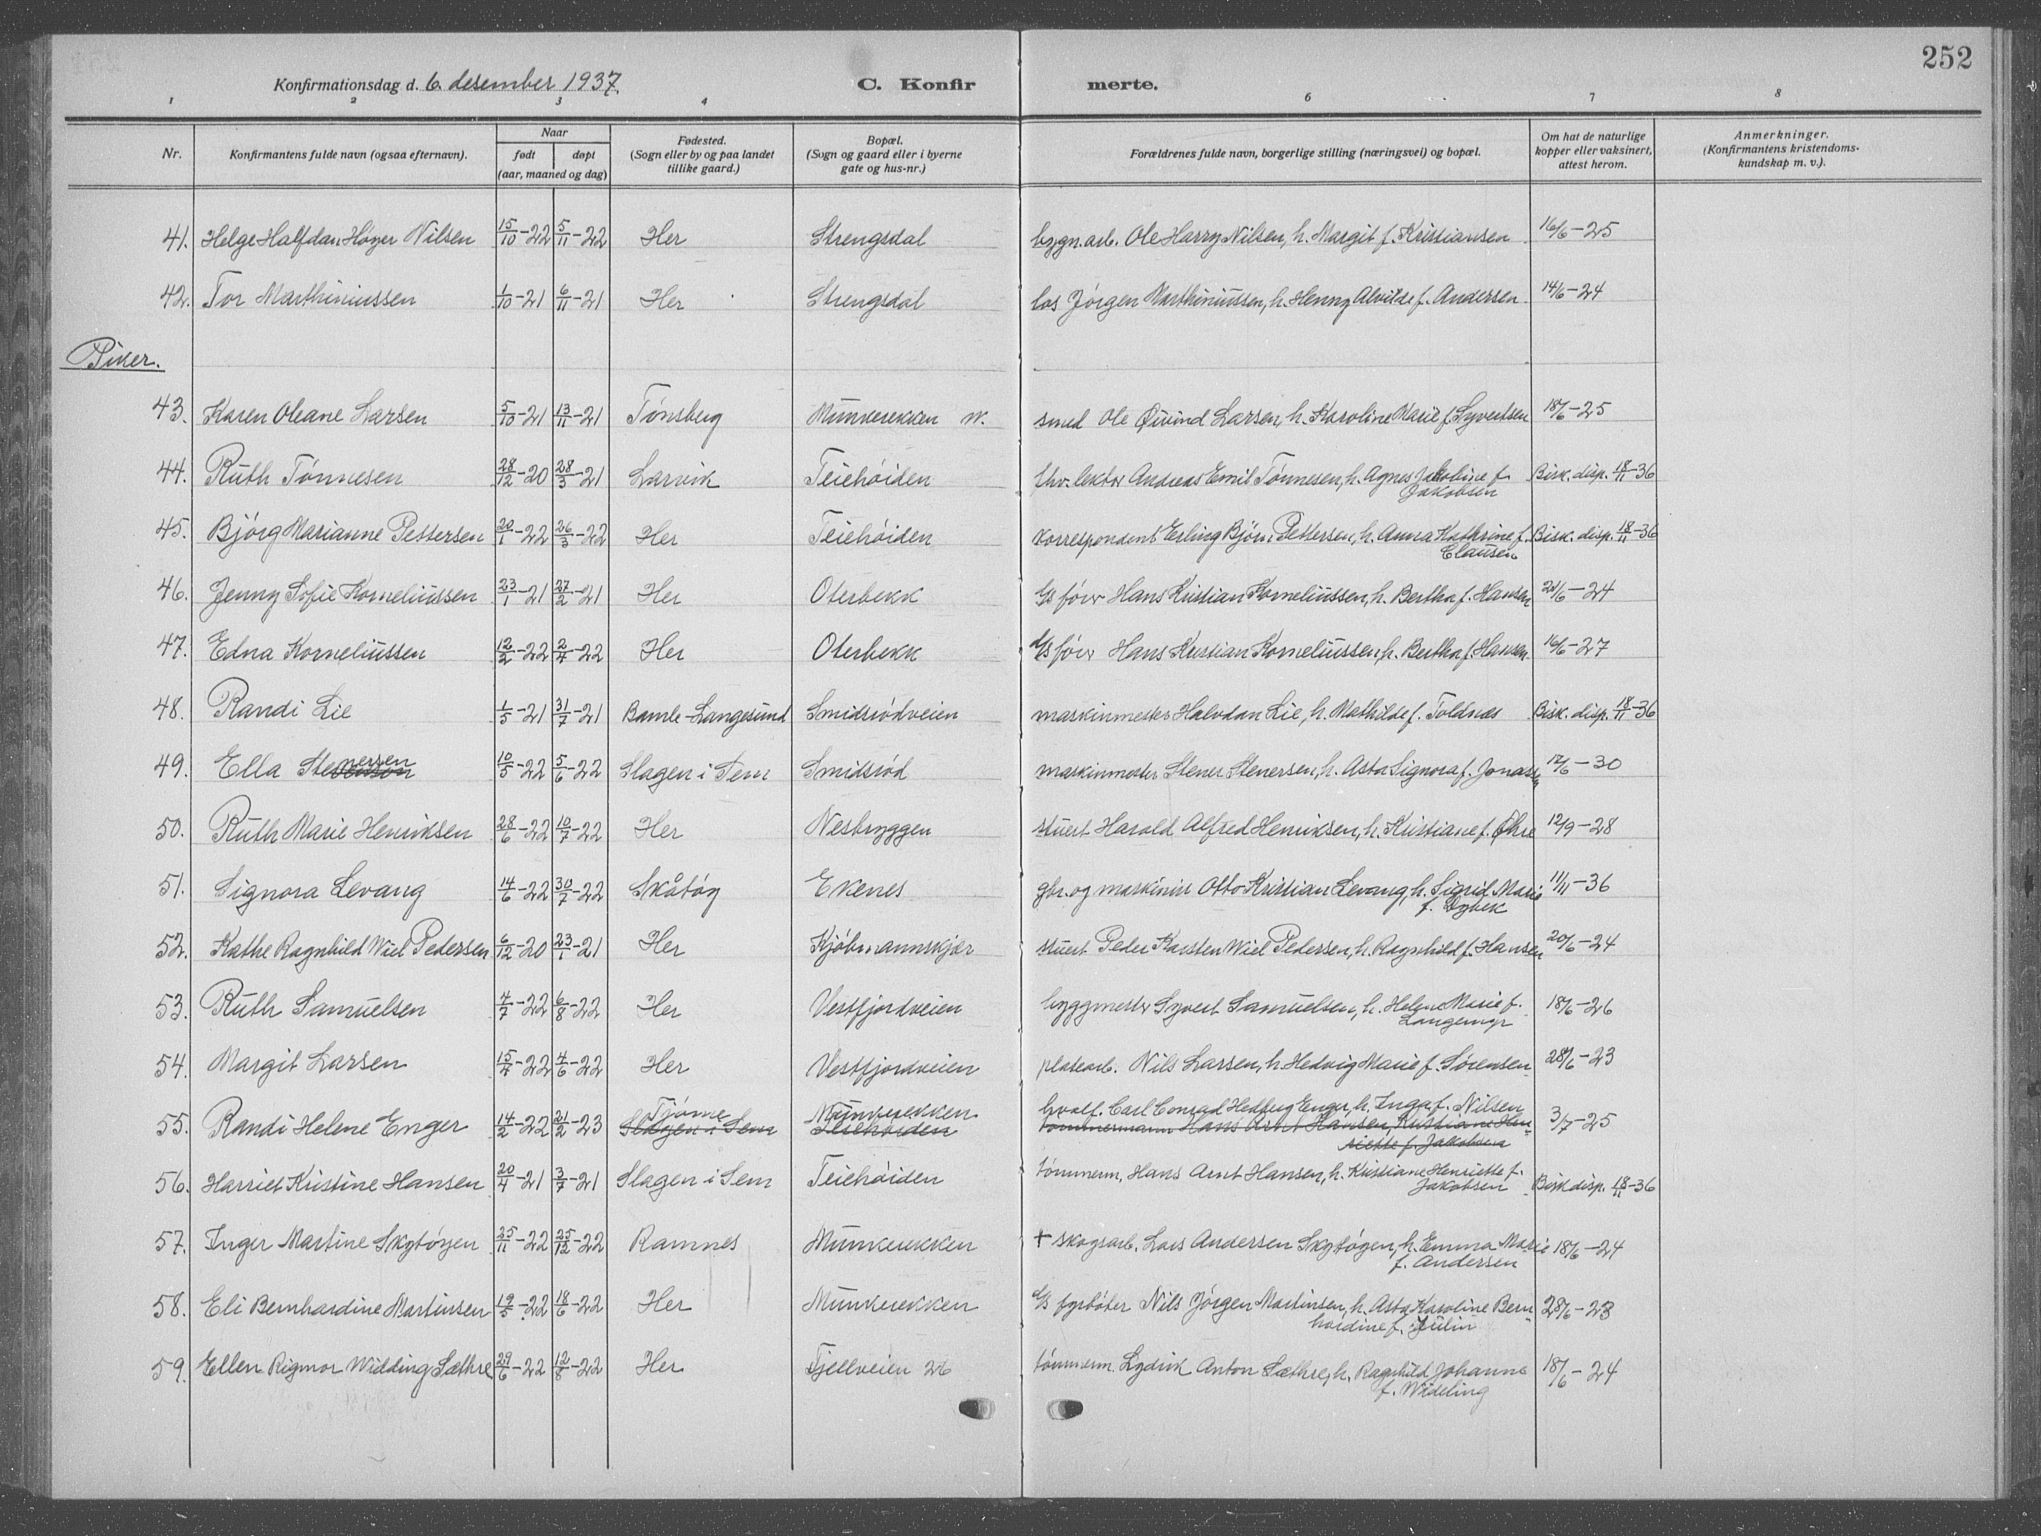 252
Konfirmationsdag d. 6. desember 1937. C. Konfir merte.
1 2 3 4 6 7 8
Nr. Konfirmantens fulde navn (ogsaa efternavn). Naar født døpt (aar, maaned og dag) Fødested. (Sogn eller by og paa landet tillike gaard.) Bopæl. (Sogn og gaard eller i byerne gate og hus-nr.) Forældrenes fulde navn, borgerlige stilling (næringsvei) og bopæl. Om hat de naturlige kopper eller vaksinert, attest herom. Anmerkninger. (Konfirmantens kristendoms-kundskap m. v.).
41. Helge Halfdan Høyer Nilsen 15/10-22 5/11-22 Her Strengsdal bygn.arb. Ole Harry Nilsen, h. Margit f. Kristiansen 16/6-25
42. Tor Marthiniussen 1/10-21 6/11-21 Her Strengsdal los Jørgen Marthiniussen, h. Henny Alvilde f. Andersen 14/6-24
Piker.
43. Karen Oleane Larsen 5/10-21 13/11-21 Tønsberg Munkerekken smed Ole Øivind Larsen, h. Karoline Marie f. Syvertsen 18/6-25
44. Ruth Tønnesen 28/12-20 28/3-21 Larvik Teiehøiden lektor Andreas Emil Tønnesen, h. Agnes f. Jakobsen Bisk. disp. 18/11-36
45. Bjørg Marianne Pettersen 20/1-22 26/3-22 Her Teiehøiden korrespondent Erling Bjørn Pettersen, h. Anna Kathrine f. Clausen Bisk. disp. 18/11-36
46. Jenny Sofie Korneliussen 23/1-21 27/2-21 Her Oterbekk Hans Kristian Korneliussen, h. Bertha f. Hansen 24
47. Edna Korneliussen 12/2-22 2/4-22 Her Oterbekk Hans Kristian Korneliussen, h. Bertha f. Hansen 16/6-27
48. Randi Lie 1/5-21 31/7-21 Bamle-Langesund Smidsrødveien maskinmester Halvdan Lie, h. Mathilde f. Toldnes Bisk. disp. 18/11-36
49. Ella Stenersen 10/5-22 5/6-22 Slagen i Sem Smidsrød maskinmester Stener Stenersen, h. Asta Signora f. Jonassen 12/6-30
50. Ruth Marie Henriksen 28/6-22 10/7-22 Her Nesbryggen stuert Harald Alfred Henriksen, h. Kristiane f. Øhre 12/9-28
51. Signora Levang 14/6-22 30/7-22 Skåtøy Ekenes gbr. og maskinist Otto Kristian Levang, h. Sigrid Marie f. Dybek 11/11-36
52. Kathe Ragnhild Wiel Pedersen 6/12-20 23/1-21 Her Kjøbmannskjær stuert Peder Karsten Wiel Pedersen, h. Ragnhild f. Hansen 20/6-24
53. Ruth Samuelsen 4/7-22 6/8-22 Her Vestfjordveien byggmester Syvert Samuelsen, h. Helene Marie f. Langemyr 18/6-26
54. Margit Larsen 15/4-22 4/6-22 Her Vestfjordveien platearb. Nils Larsen, h. Hedvig Marie f. Sørensen 28/6-23
55. Randi Helene Enger 14/2-22 21/2-23 Tjøme Slagen i Sem Munkerekken Teiehøiden hvalf. Carl Conrad Hedberg Enger, h. Inga f. Nilsen tømmermann Hans Arnt Hansen, Kristiane Henriette f. Jakobsen 3/7-25
56. Harriet Kristine Hansen 20/4-21 3/7-21 Slagen i Sem Teiehøiden tømmerm. Hans Arnt Hansen, h. Kristiane Henriette f. Jakobsen Bisk disp. 18/11-36
57. Inger Martine Skytøyen 25/11-22 25/12-22 Ramnes Munkerekken + skogsarb. Lars Andersen Skytøyen, h. Emma Marie f. Andersen 18/6-24
58. Eli Bernhardine Martinsen 19/5-22 18/6-22 Her Munkerekken fyrbøter Nils Jørgen Martinsen, h. Asta Karoline Bernhardine f. Julin 28/6-23
59. Ellen Rigmor Widding Sæthre 29/6-22 12/8-22 Her Fjellveien 26 tømmerm. Lydrik Anton Sæthre, h. Ragnhild Johanne f. Wideling 18/6-24